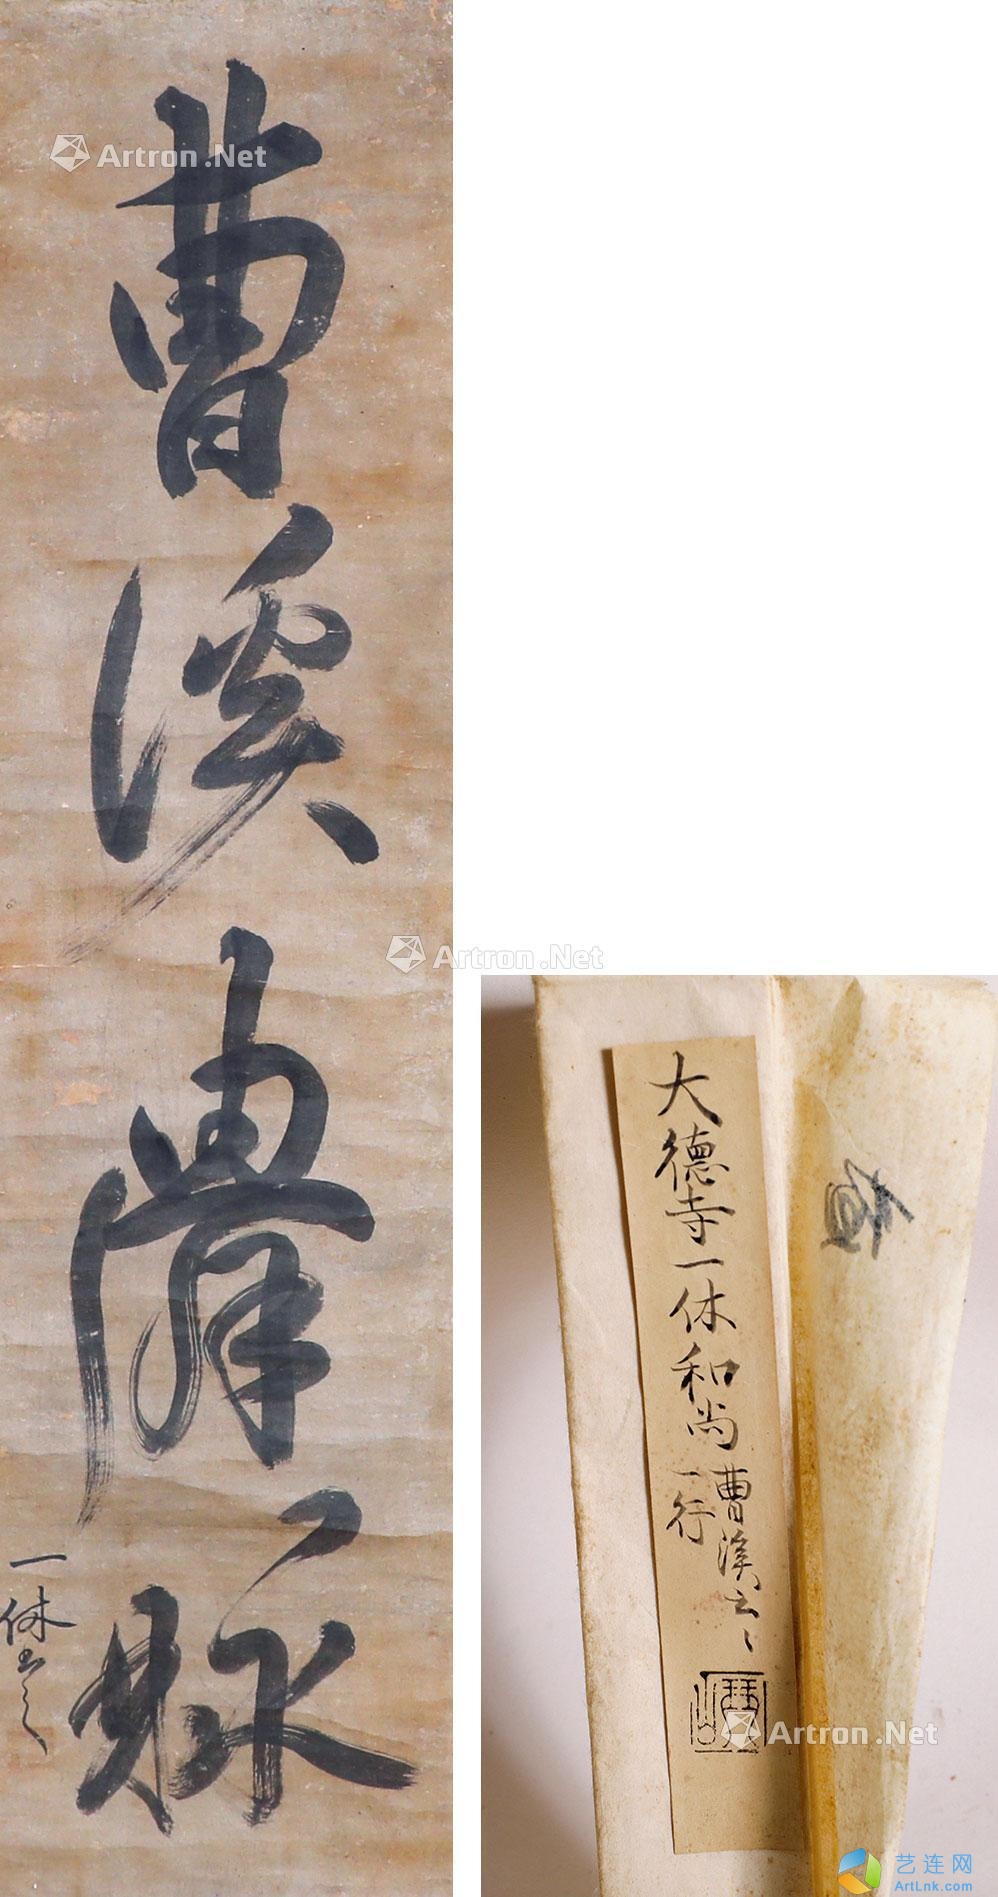 曹溪滹脉
一休書之
大德寺一休和尚曹溪云々
一行
琴山
Artron.Net
Artron.Net
Artron.Net
艺连网
ArtLnk.com